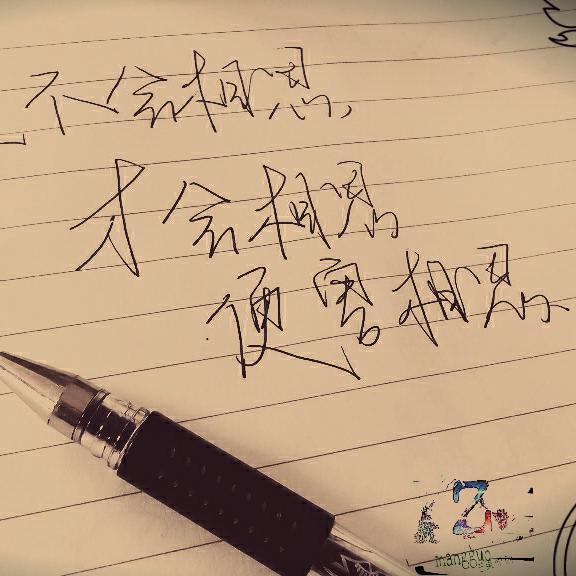 不会相思,
才会相思
便害相思
mangguo